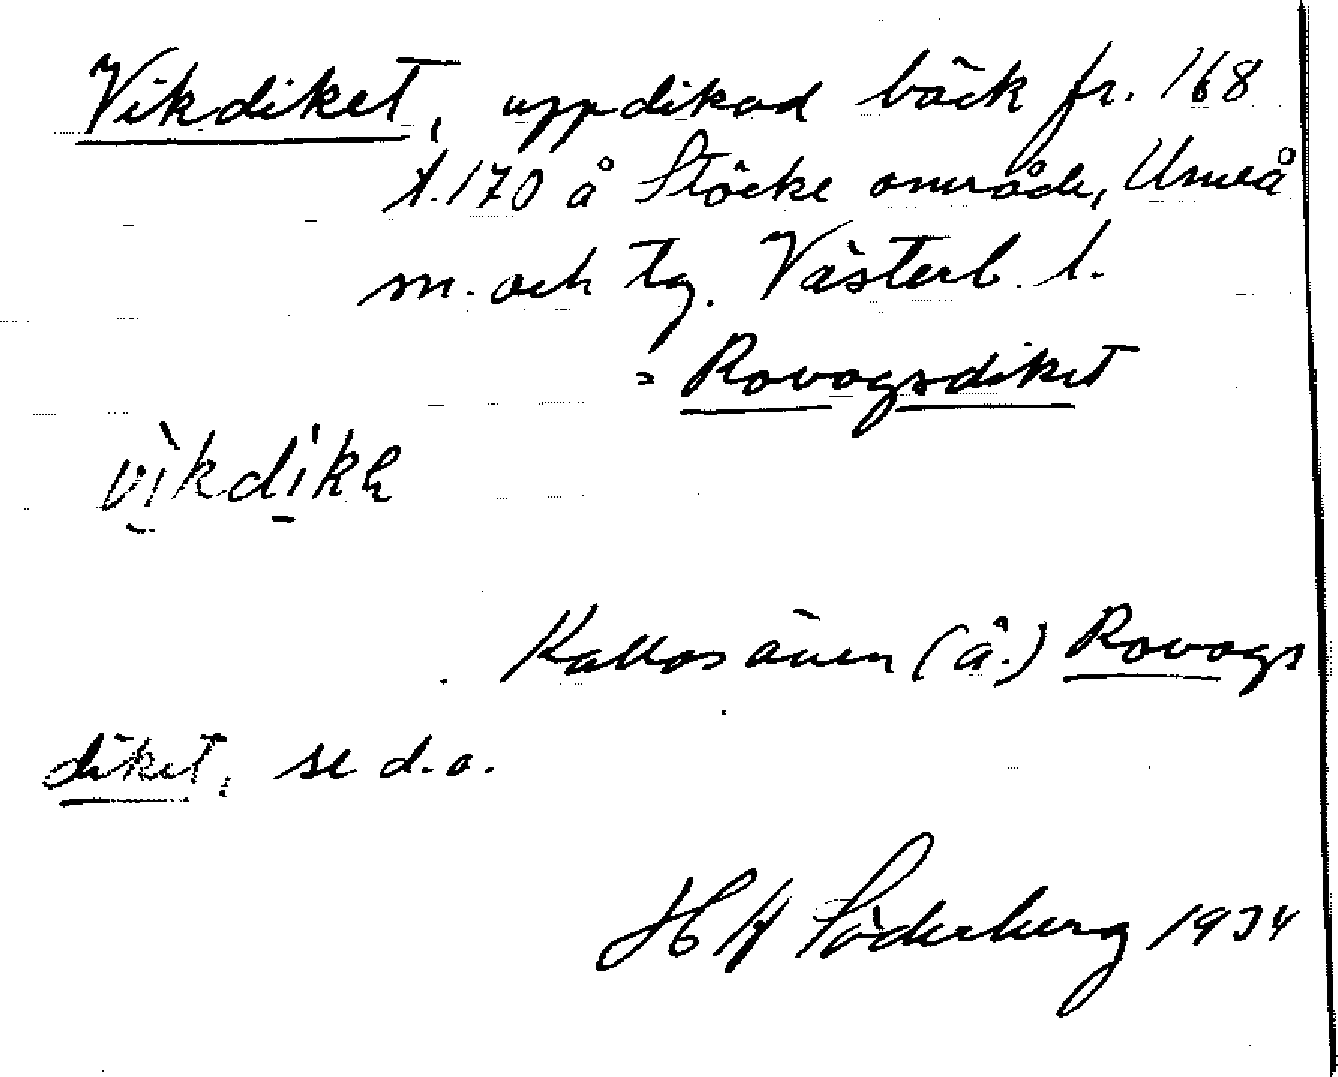 Vikdiket, uppdikad bäck fr. 168
t. 170 å Stöcke område, Umeå
m. och tg. Västerb. l.
= Rovogsdiket
(å.) Rovogs
diket, se d.o.
Söderberg 1934